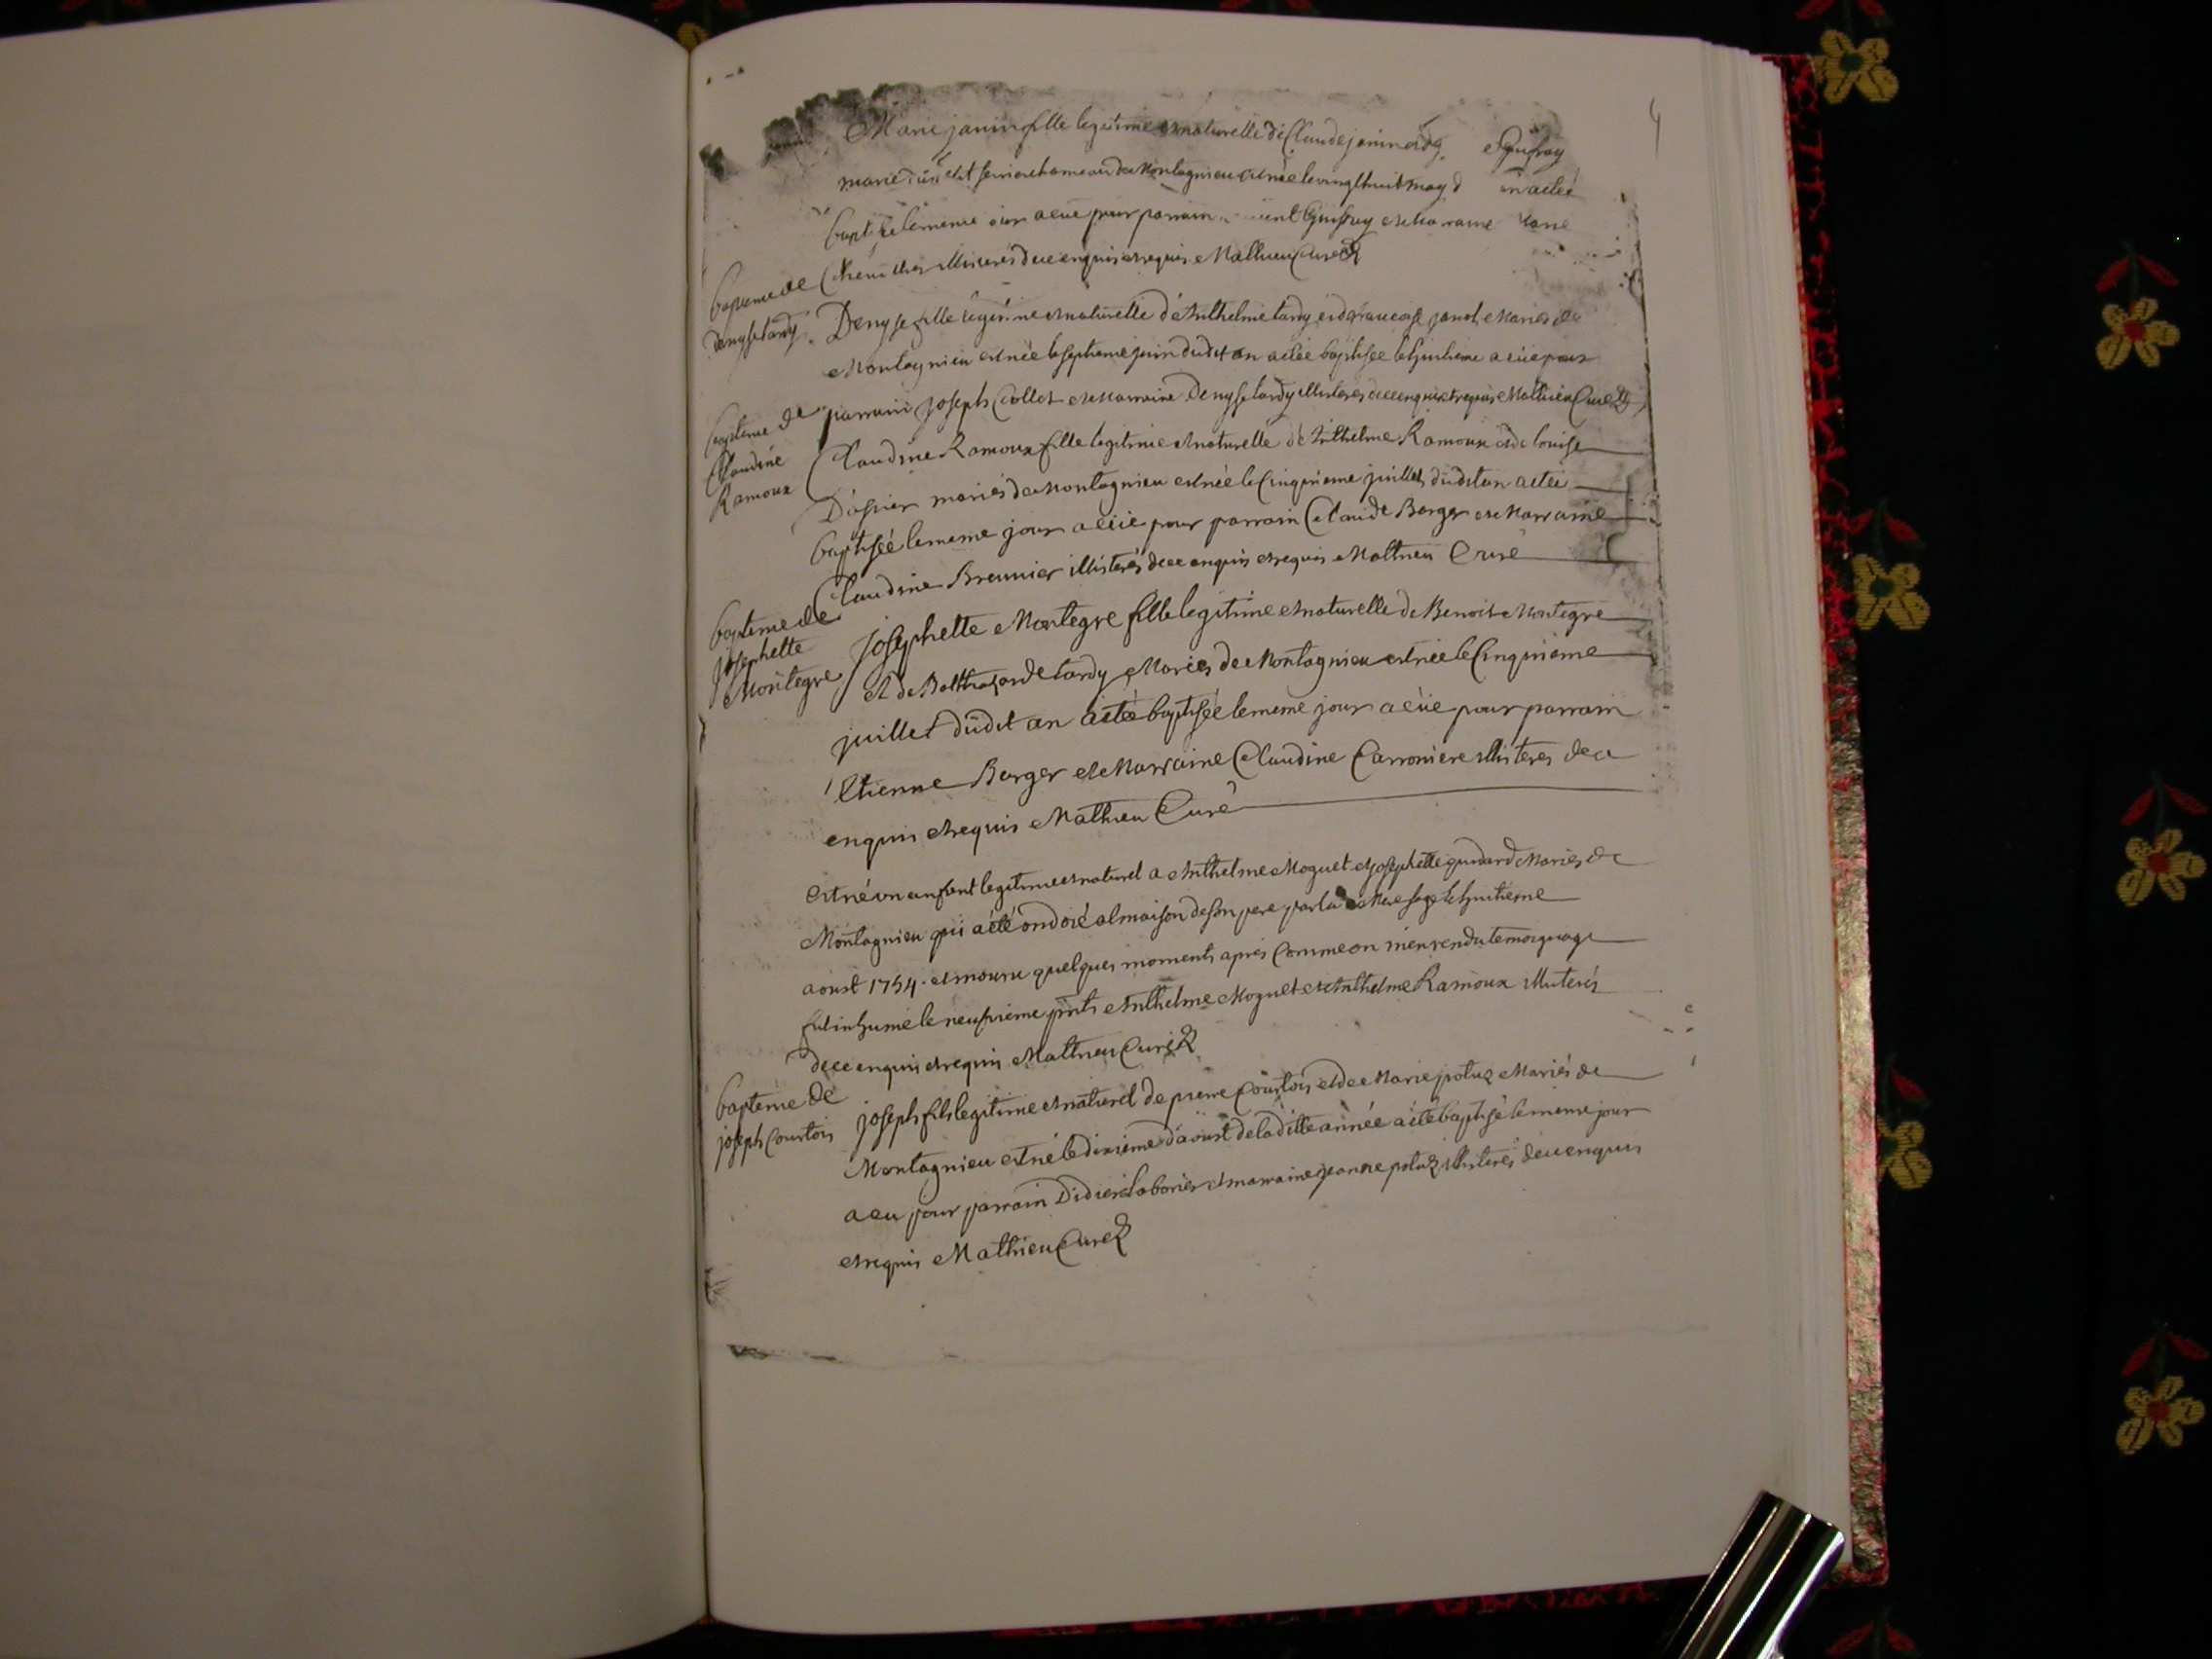 4
Marie janin fille legitime et naturelle de Claude janin et de Guifray
mariés hameau de Montagnieu est née le vingt huit may an a eté
le meme jour a eüe pour parrain Guifray et Marraine
illiterés de ce enquis et requis Mathieu Curé
bapteme de
Denyse tardy
Denyse fille legitime et naturelle d'Anthelme tardy et de francoise janot Mariés de
Montagnieu est née le septieme juin dudit an a etée baptisée le huitieme a eüe pour
parrain joseph Collet et Marraine Denyse tardy illiterés de ce enquis et requis Mathieu Curé
bapteme de
Claudine
Ramoux
Claudine Ramoux fille legitime et naturelle de Anthelme Ramoux et de louise
mariés de Montagnieu est née le Cinquieme juillet dudit an a eté
baptisée le meme jour a eüe pour parrain Claude Barger et Marraine
Claudine Breunier illiterés de ce enquis et requis Mathieu Curé
bapteme de
josephette
Montegre
josephette Montegre fille legitime et naturelle de Benoit Montegre
et de Balthazarde tardy Mariés de Montagnieu est née le Cinquieme
juillet dudit an a eté baptisée le meme jour a eüe pour parrain
Etienne Barger et Marraine Claudine Carroniere illiterés de ce
enquis et requis Mathieu Curé
est né un enfant legitime et naturel a Anthelme Moguet et josephette gudard Mariés de
Montagnieu qui a eté ondoié a la maison de son pere par la sage le huitieme
aoust 1754 et mouru quelques moments aprés comme on m'en rendu temoignage
fut inhumé le neufvieme pnts Anthelme Moguet et Anthelme Ramoux illiterés
de ce enquis et requis Mathieu Curé
bapteme de
joseph Courtois
joseph fils legitime et naturel de pierre Courtois et de Marie poluz Mariés de
Montagnieu est né le dixieme d'aoust de la ditte année a eté baptisé le meme jour
a eu pour parrain Didier laborier et marraine jeanne poluz illiterés de ce enquis
et requis Mathieu Curé